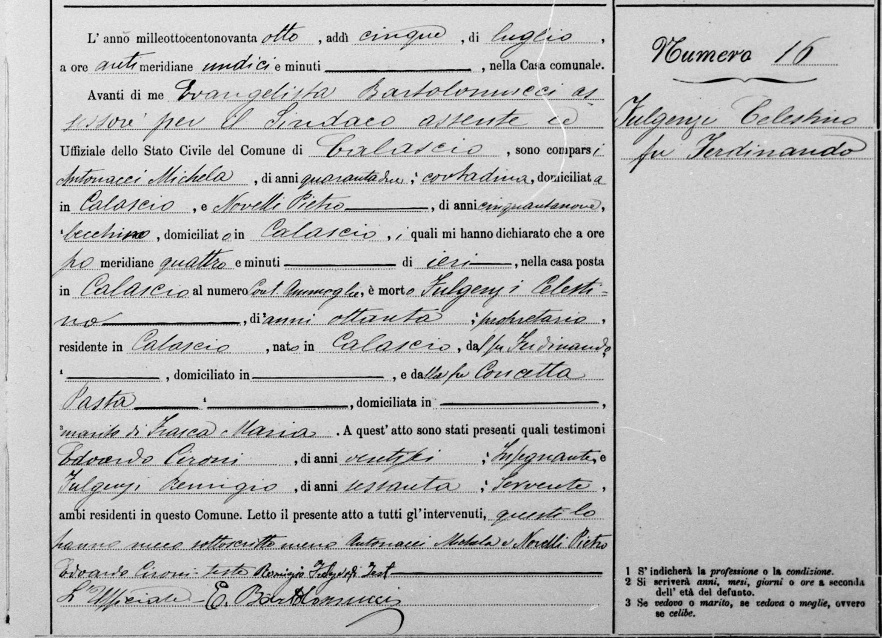 L' anno milleottocentonovanta otto, addì cinque, di luglio,
a ore anti meridiane undici e minuti, nella Casa comunale.
Avanti di me Evangelista Bartolomucci as
sessore per il Sindaco assente ed
Uffiziale dello Stato Civile del Comune di Calascio, sono comparsi
Antonacci Michela, di anni quarantadue; contadina, domiciliata
in Calascio, e Novelli Pietro, di anni cinquantanove,
becchino, domiciliato in Calascio, i quali mi hanno dichiarato che a ore
po meridiane quattro e minuti di ieri, nella casa posta
in Calascio al numero, è morto Fulgenzi Celesti-
no, di anni ottanta; proprietario,
residente in Calascio, nato in Calascio, dal fu Ferdinando,
, domiciliato in, e dalla fu Concetta
Pasta, domiciliata in,
marito di Frasca Maria. A quest' atto sono stati presenti quali testimoni
Edoardo Cironi, di anni; Insegnante, e
Fulgenzi Remigio, di anni sessanta; Servente,
ambi residenti in questo Comune. Letto il presente atto a tutti gl'intervenuti, questi lo
hanno meco sottoscritto meno Antonacci Michela e Novelli Pietro
Edoardo Cironi teste Remigio Fulgenzi Test
L'Uffiziale E. Bartolomucci
Numero 16
Fulgenzi Celestino
fu Ferdinando
1 S' indicherà la professione o la condizione.
2 Si scriverà anni, mesi, giorni o ore a seconda
dell' età del defunto.
3 Se vedovo o marito, se vedova o moglie, ovvero
se celibe.